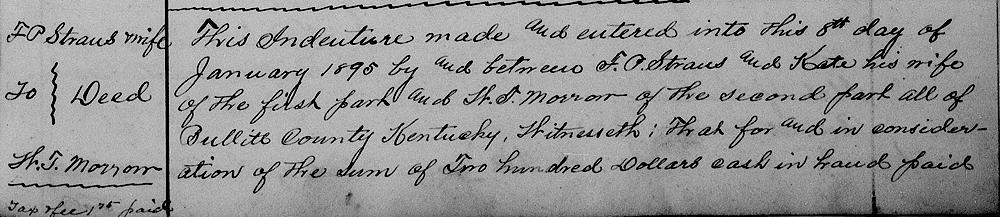 F P Straus & wife
To } Deed
W. T. Morrow
Tax & fee 1.75 paid
This Indenture made and entered into this 8th day of
January 1895 by and between F. P. Straus and Kate his wife
of the first part and W. T. Morrow of the second part all of
Bullitt County Kentucky, Witnesseth: That for and in consider-
ation of the sum of Two hundred Dollars cash in hand paid